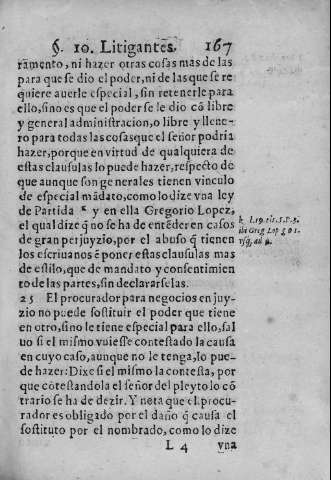 §. 10. Litigantes. 167
ramento, ni hazer otras cosas mas de las
para que se dio el poder, ni de las que se re
quiere auerle especial, sin retenerle para
ello, sino es que el poder se le dio cō libre
y general administracion, o libre y llene-
ro para todas las cosas que el señor podria
hazer, porque en virtud de qualquiera de
estas clausulas lo puede hazer, respecto de
que aunque son generales tienen vinculo
de especial mādato, como lo dize vna ley
de Partida k y en ella Gregorio Lopez,
el qual dize q̄ no se ha de entēder en casos
de gran perjuyzio, por el abuso q̄ tienen
los escriuanos ē poner estas clausulas mas
de estilo, que de mandato y consentimien
to de las partes, sin declararselas.
k l. 19. tit. 5. p. 3.
ibi Greg. Lop.
25 El procurador para negocios en juy-
zio no puede sostituir el poder que tiene
en otro, sino le tiene especial para ello, sal
uo si el mismo vuiesse contestado la causa
en cuyo caso, aunque no le tenga, lo pue-
de hazer: Dixe si el mismo la contesta, por
que cōtestandola el señor del pleyto lo cō-
trario se ha de dezir. Y nota que el procu-
rador es obligado por el daño q̄ causa el
sostituto por el nombrado, como lo dize
L 4 vna